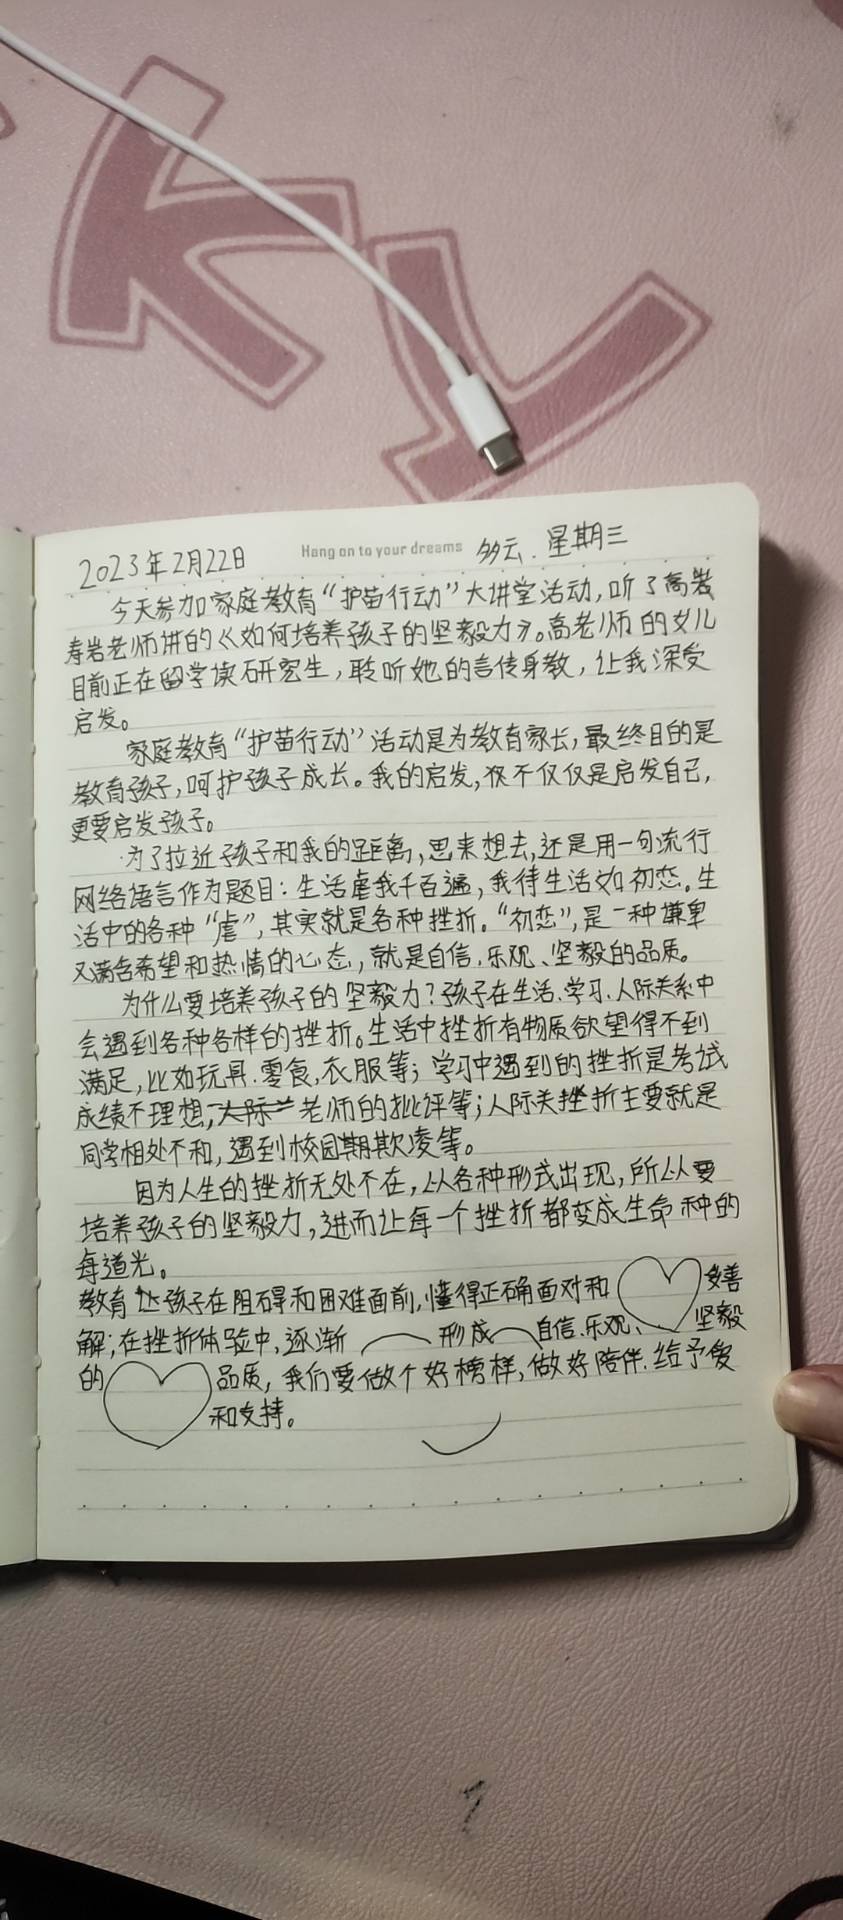 2023年2月22日 Hang on to your dreams 多云. 星期三
今天参加家庭教育“护苗行动”大讲堂活动，听了高岩
寿岩老师讲的《如何培养孩子的坚毅力》。高老师的女儿
目前正在留学读研究生，聆听她的言传身教，让我深受
启发。
家庭教育“护苗行动”活动是为教育家长，最终目的是
教育孩子，呵护孩子成长。我的启发，仅不仅仅是启发自己，
更要启发孩子。
为了拉近孩子和我的距离，思来想去，还是用一句流行
网络语言作为题目：生活虐我千百遍，我待生活如初恋。生
活中的各种“虐”，其实就是各种挫折。“初恋”，是一种谦卑
又满含希望和热情的心态，就是自信.乐观、坚毅的品质。
为什么要培养孩子的坚毅力？孩子在生活.学习.人际关系中
会遇到各种各样的挫折。生活中挫折有物质欲望得不到
满足，比如玩具.零食，衣服等；学习中遇到的挫折是考试
成绩不理想，人际 老师的批评等；人际关挫折主要就是
同学相处不和，遇到校园期欺凌等。
因为人生的挫折无处不在，以各种形式出现，所以要
培养孩子的坚毅力，进而让每一个挫折都变成生命种的
每道光。
教育 让孩子在阻碍和困难面前，懂得正确面对和 妥善
解；在挫折体验中，逐渐 形成 自信.乐观、 坚毅
的 品质，我们要做个好榜样，做好陪伴.给予爱
和支持。